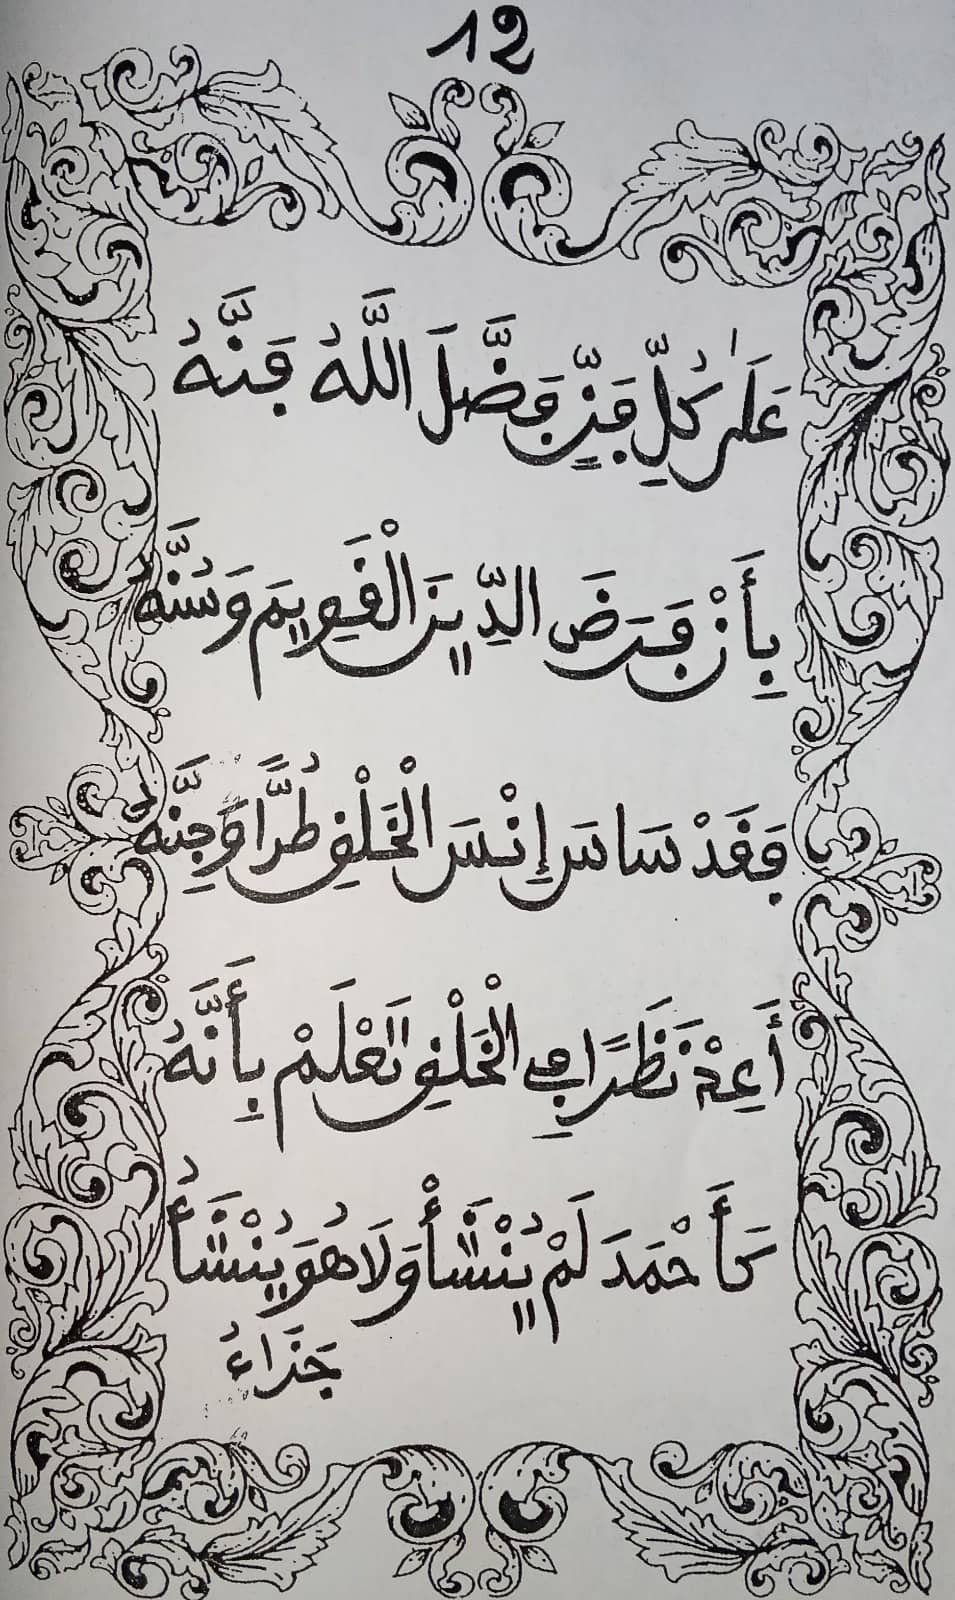 12
عَلَىٰ كُلِّ فَنٍّ فَضَّلَ اللَّهُ فَنَّهُ
بِأَنْ فَرَضَ الدِّينَ الْقَوِيمَ وَسَنَّهُ
فَقَدْ سَاسَ إِنْسَ الْخَلْقِ طُرًّا وَجِنَّهُ
أَعِدْ نَظَرًا فِي الْخَلْقِ تَعْلَمْ بِأَنَّهُ
كَأَحْمَدَ لَمْ يُنْشَأْ وَلَا هُوَ يُنْشَأُ
جَزَاءُ